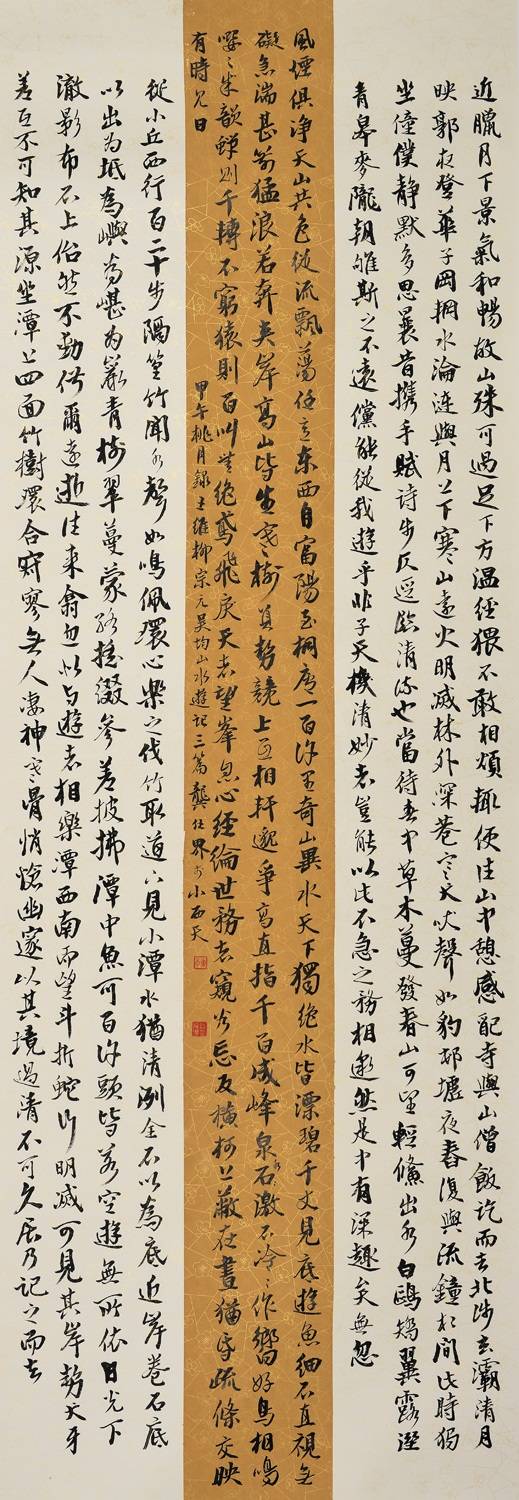 近臘月下景氣和暢故山殊可過足下方溫經猥不敢相煩輒便往山中憩感配寺與山僧飯訖而去北涉玄灞清月
映郭夜登華子岡輞水淪漣與月上下寒山遠火明滅林外深巷寒犬吠聲如豹村墟夜舂復與流鐘相間此時獨
坐僮僕靜默多思曩昔攜手賦詩步仄逕臨清流也當待春中草木蔓發春山可望輕鯈出水白鷗矯翼露溼
青皋麥隴朝雊斯之不遠儻能從我遊乎非子天機清妙者豈能以此不急之務相邀然是中有深趣矣無忽
風煙俱淨天山共色從流飄蕩任意东西自富陽至桐廬一百许里奇山異水天下獨絶水皆漂碧千丈見底遊魚細石直視無
礙急湍甚箭猛浪若奔夾岸高山皆生寒樹負勢競上互相軒邈爭高直指千百成峰泉水激石冷冷作響好鳥相鳴
嚶嚶成韻蟬则千轉不窮猿則百叫無绝鸢飛戾天者望峯息心經綸世務者窺谷忘反橫柯上蔽在晝猶昏疏條交映
有時見日
甲午桃月録王維柳宗元吴均山水遊记三篇龔仕界于小西天
從小丘西行百二十步隔篁竹聞水聲如鳴佩環心樂之伐竹取道下見小潭水猶清洌全石以為底近岸卷石底
以出為坻為嶼為嵁為巖青樹翠蔓蒙络摇綴參差披拂潭中魚可百许頭皆若空遊無所依日光下
澈影布石上佁然不動俶爾遠逝往来翕忽似与遊者相樂潭西南而望斗折蛇行明滅可見其岸勢犬牙
差互不可知其源坐潭上四面竹樹環合寂寥無人凄神寒骨悄愴幽邃以其境過清不可久居乃記之而去